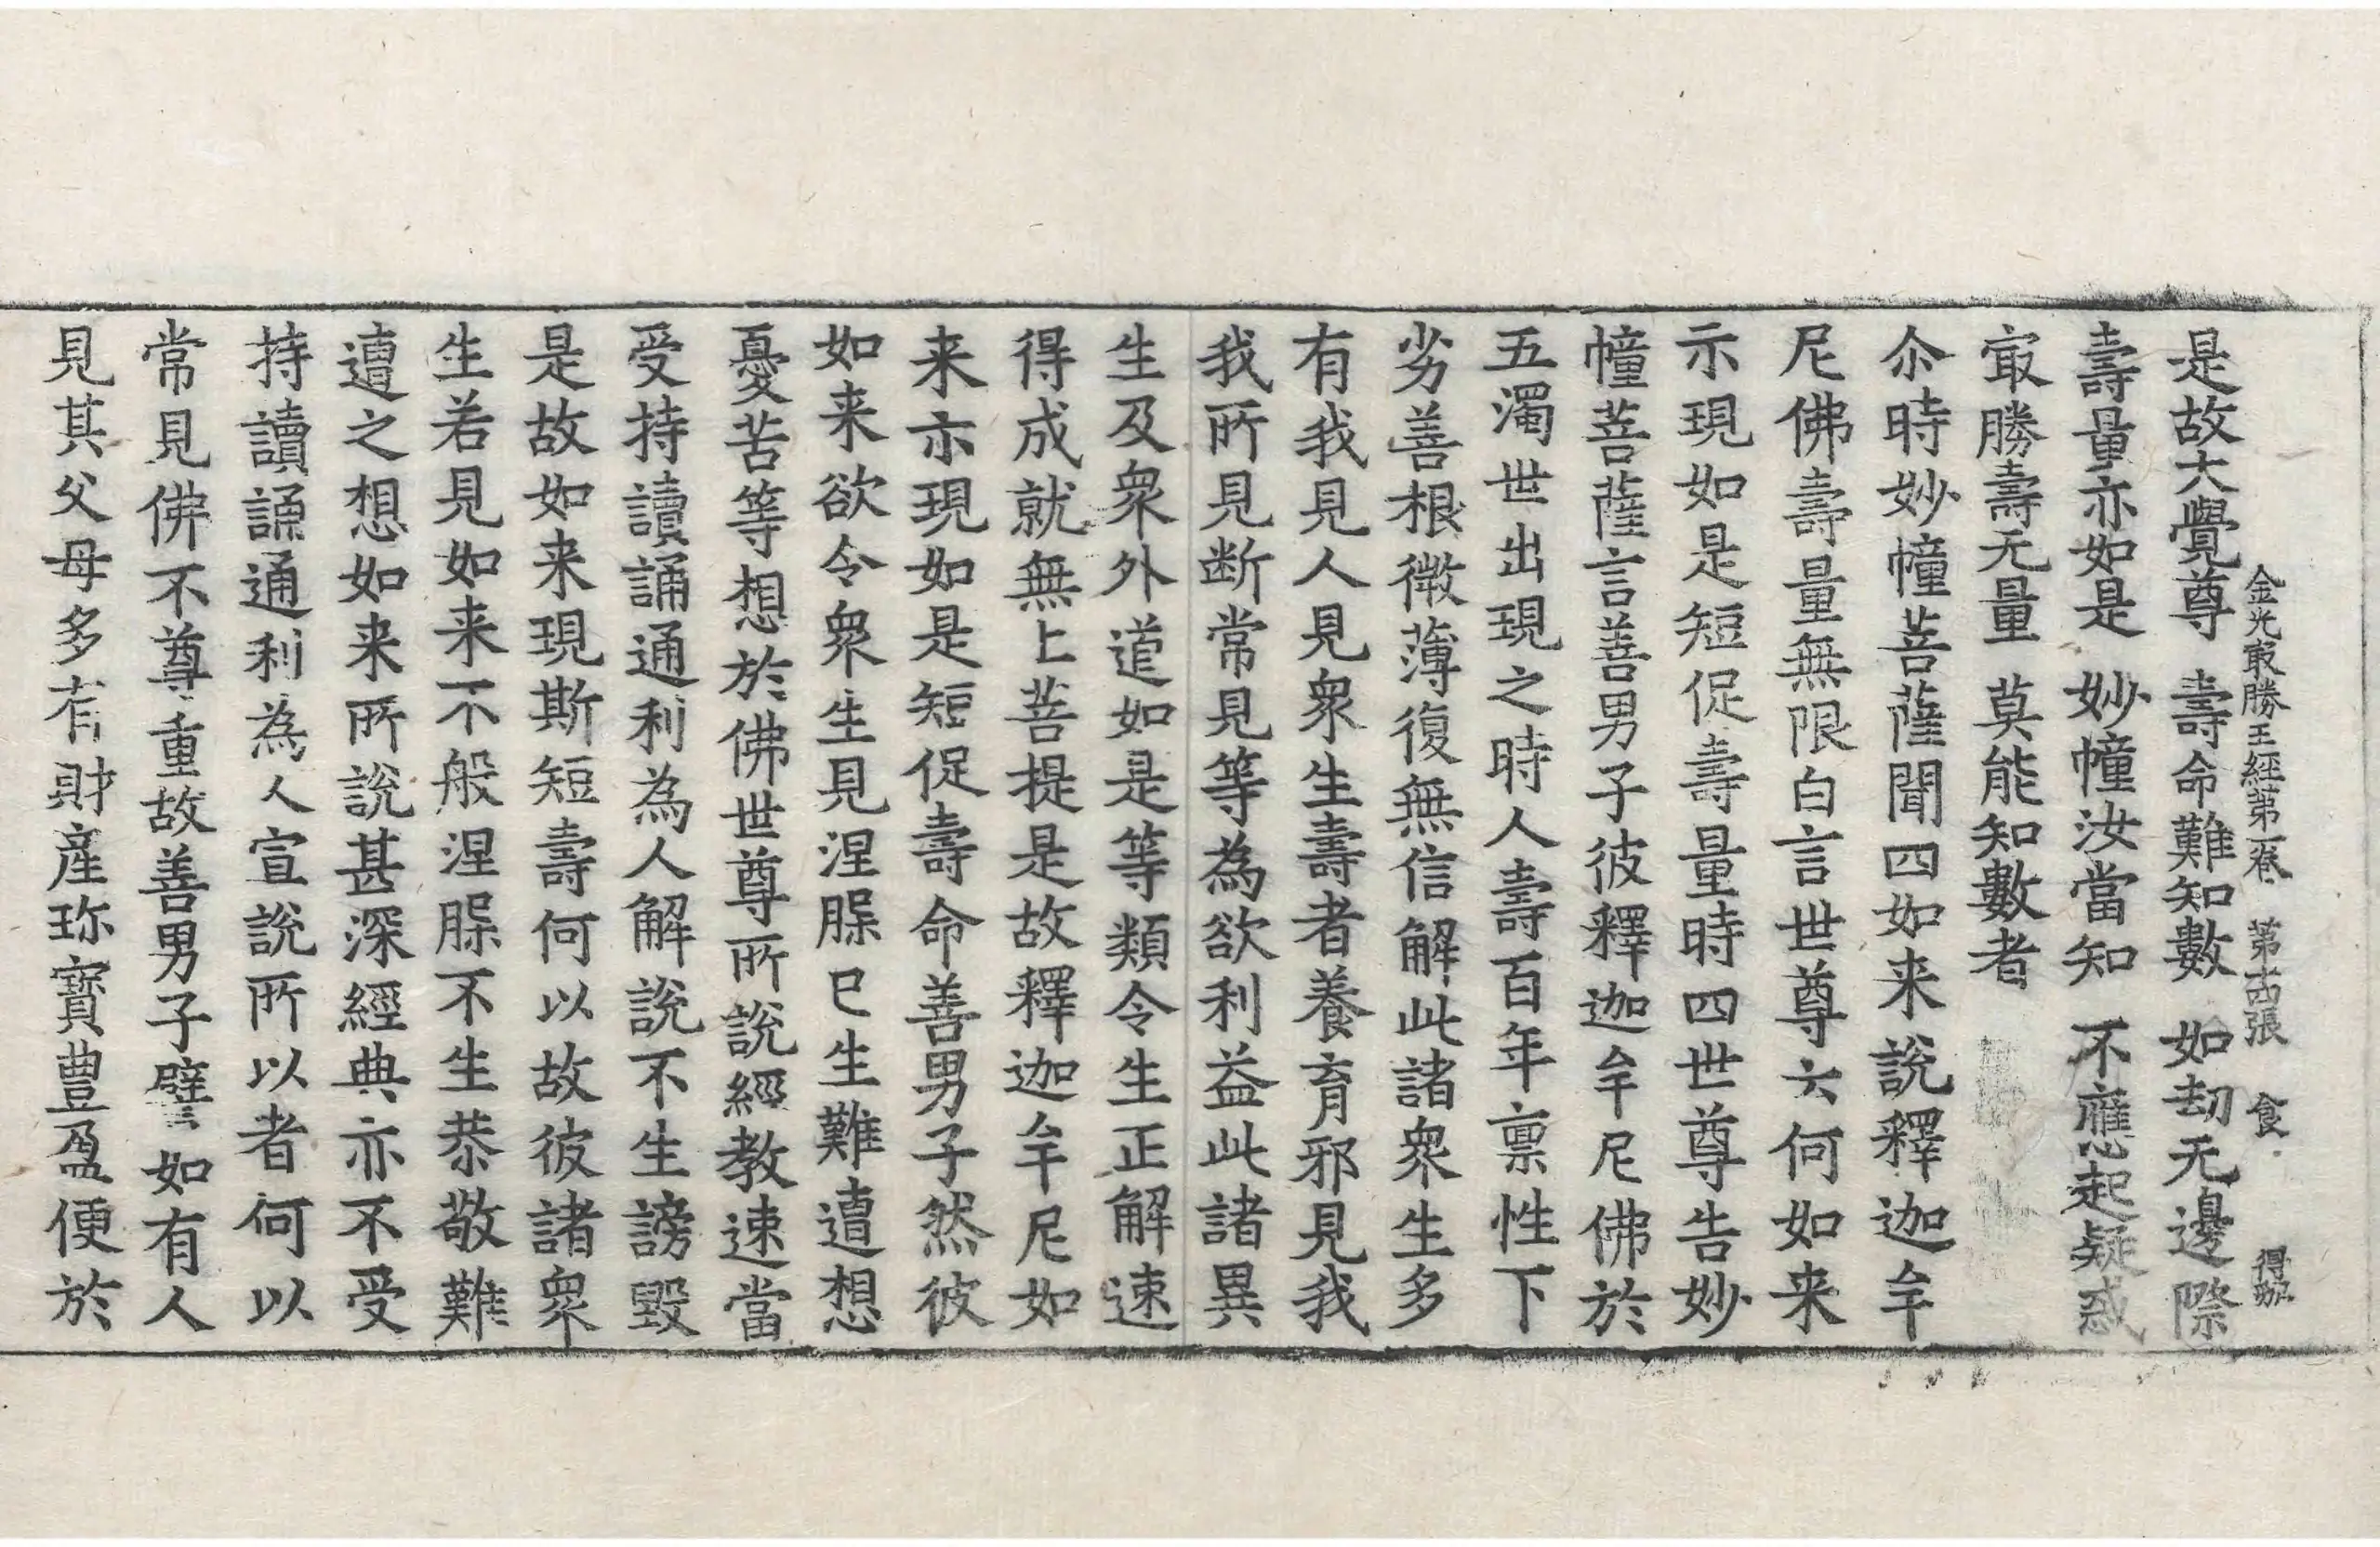 金光㝡勝王經第一卷 第十四張 食 得珈
是故大覺尊 壽命難知數 如劫无邊際
壽量亦如是 妙幢汝當知 不應起疑惑
㝡勝壽无量 莫能知數者
尒時妙幢菩薩聞四如来說釋迦牟
尼佛壽量無限白言世尊云何如来
示現如是短促壽量時四世尊告妙
幢菩薩言善男子彼釋迦牟尼佛於
五濁世出現之時人壽百年稟性下
劣善根微薄復無信解此諸衆生多
有我見人見衆生壽者養育邪見我
我所見断常見等為欲利益此諸異
生及衆外道如是等類令生正解速
得成就無上菩提是故釋迦牟尼如
来示現如是短促壽命善男子然彼
如来欲令衆生見涅槃已生難遭想
憂苦等想於佛世尊所說經教速當
受持讀誦通利為人解說不生謗毀
是故如来現斯短壽何以故彼諸衆
生若見如来不般涅槃不生恭敬難
遭之想如来所說甚深經典亦不受
持讀誦通利為人宣說所以者何以
常見佛不尊重故善男子譬如有人
見其父母多有財産珎寶豊盈便於